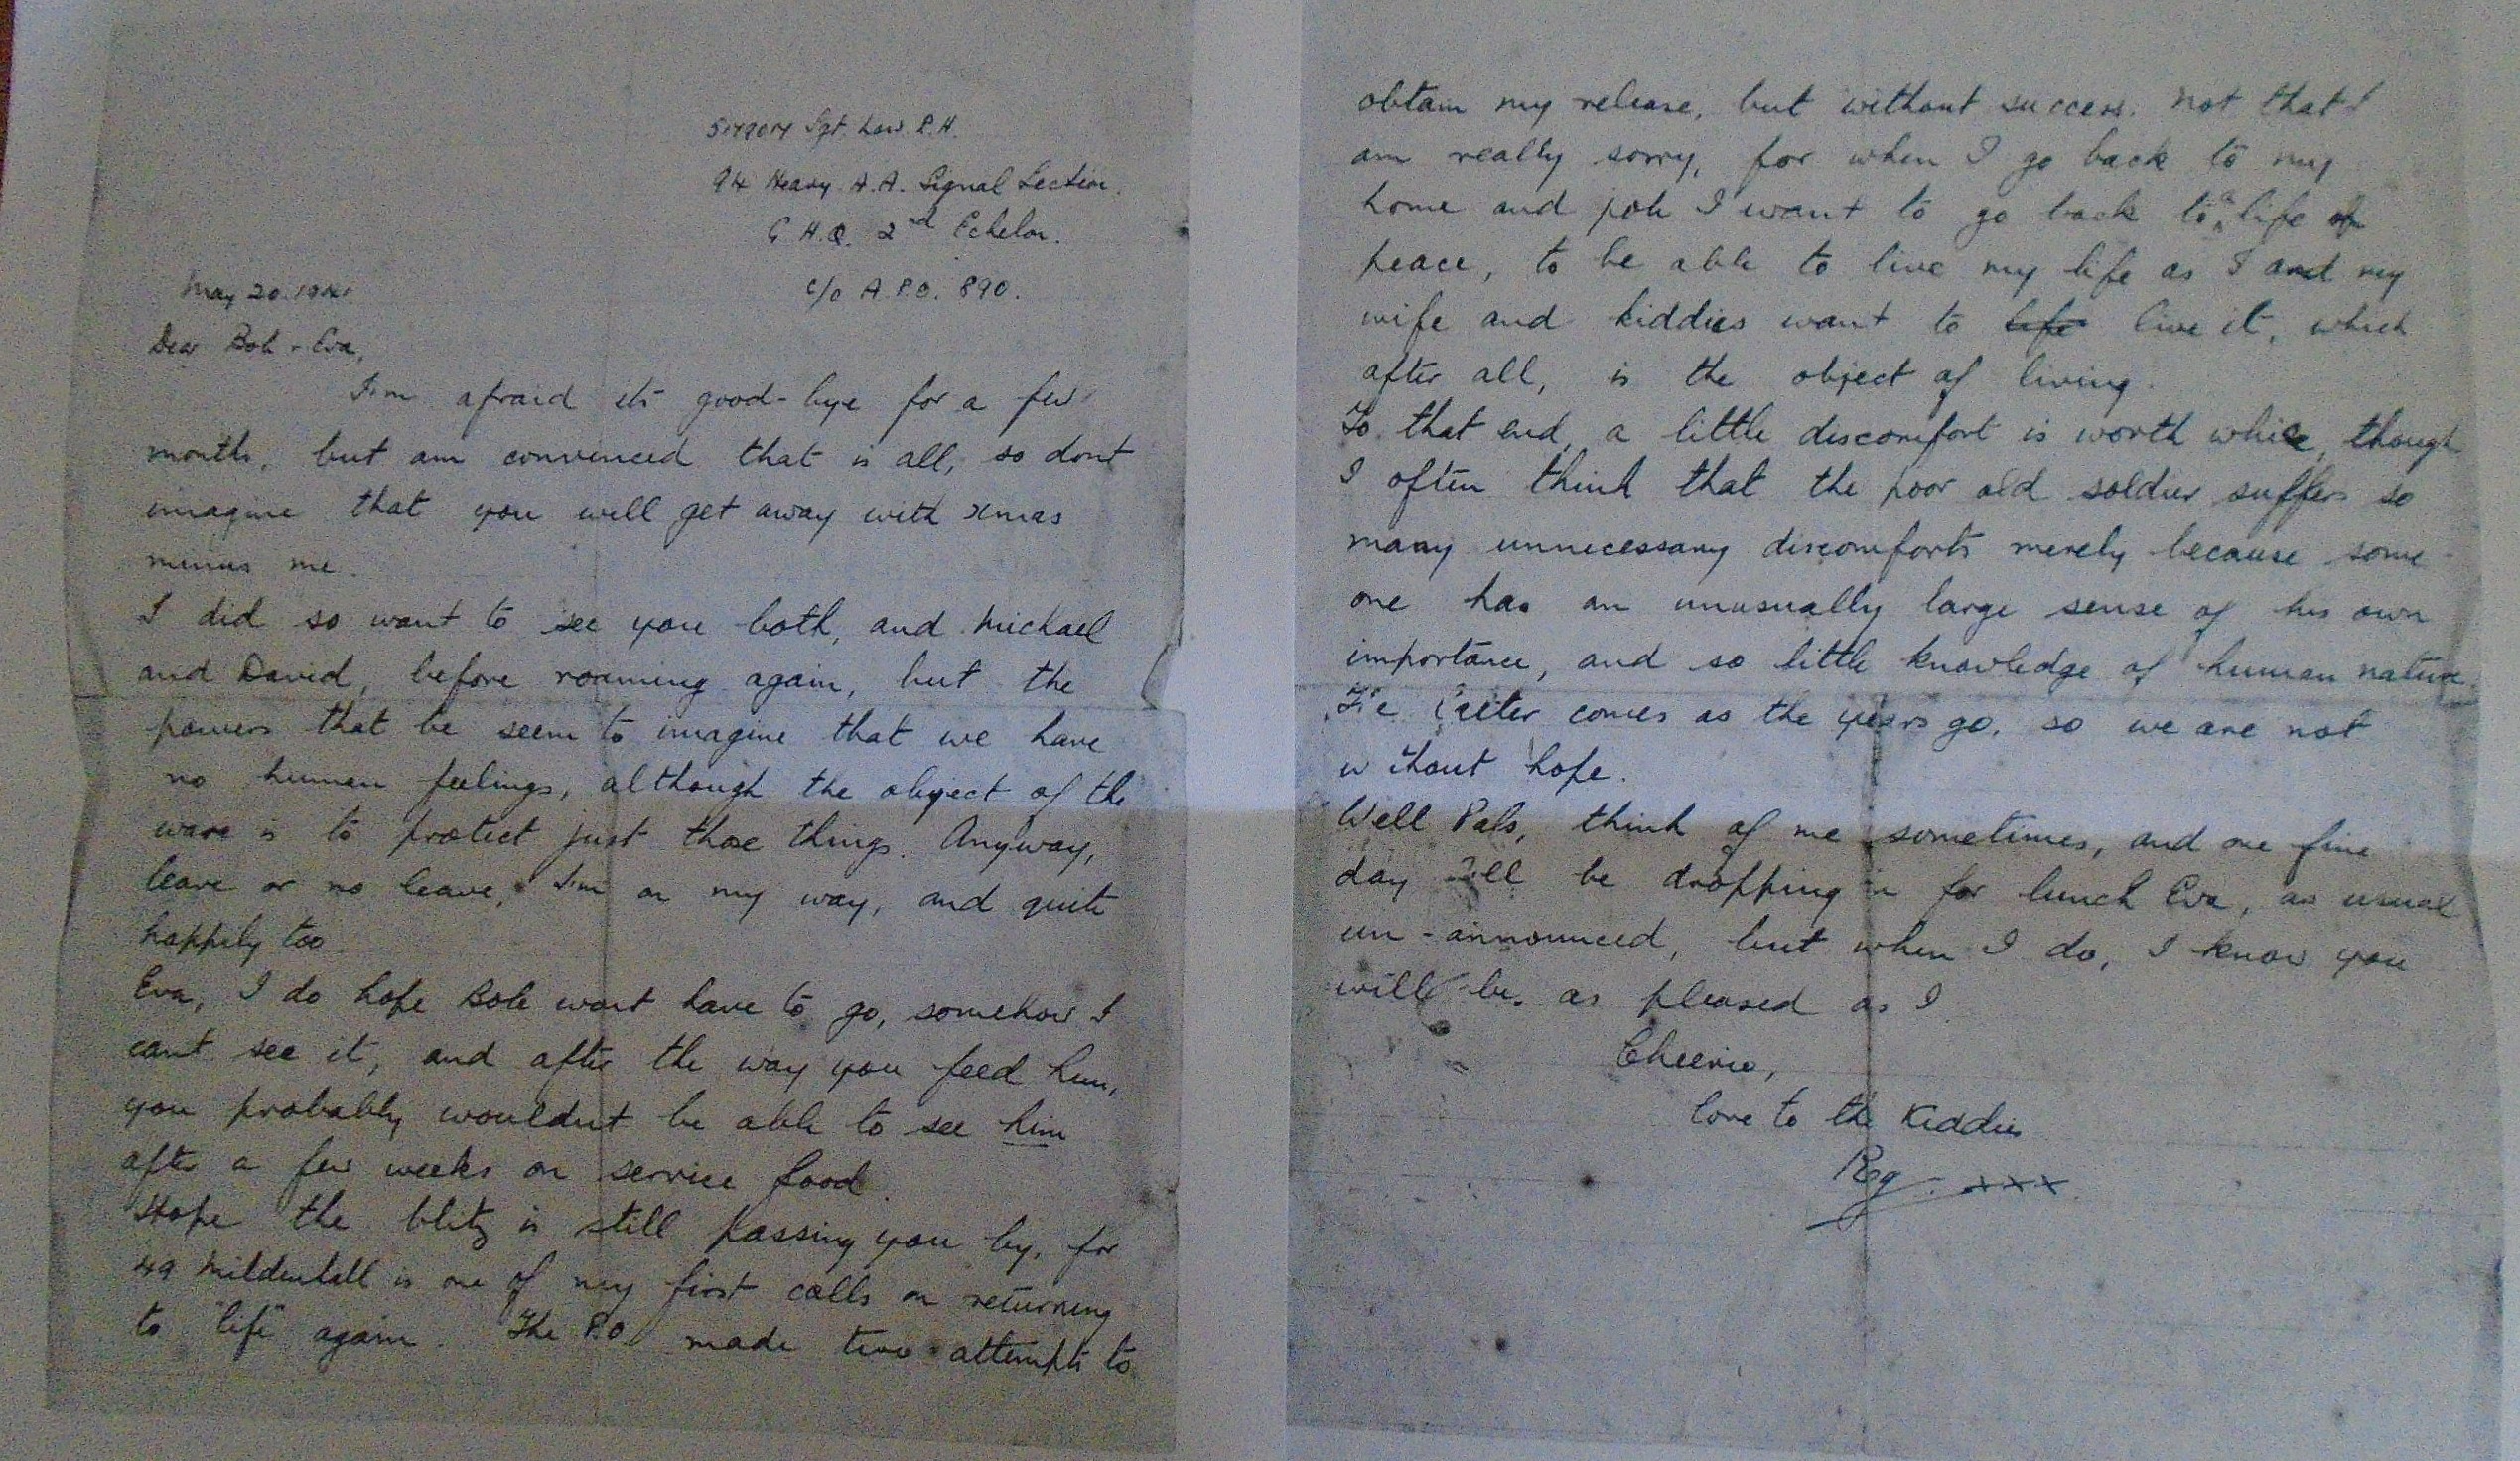 Sgt. Law. R.H.
94 Heavy A.A. Signal Section.
G.H.Q. 2nd Echelon.
c/o A.P.O. 890.
May 20. 1941
Dear Bob - Eva,
I'm afraid its good-bye for a few
months, but am convinced that is all, so dont
imagine that you will get away with xmas
minus me.
I did so want to see you both, and Michael
and David, before roaming again, but the
powers that be seem to imagine that we have
no human feelings, although the object of the
ware is to protect just those things. Anyway,
leave or no leave, I'm on my way, and quite
happily too.
Eva, I do hope Bob wont have to go, somehow I
cant see it, and after the way you feed him,
you probably wouldnt be able to see him
after a few weeks on service food.
Hope the blitz is still passing you by, for
49 Mildenhall is one of my first calls on returning
to "life" again. The P.O. made two attempts to
obtain my release, but without success. Not that I
am really sorry, for when I go back to my
home and job I want to go back to a life of
peace, to be able to live my life as I and my
wife and kiddies want to life live it, which
after all, is the object of living.
To that end, a little discomfort is worth while, though
I often think that the poor old soldier suffers so
many unnecessary discomforts merely because some
one has an unusually large sense of his own
importance, and so little knowledge of human nature.
The latter comes as the years go, so we are not
without hope.
Well Pals, think of me sometimes, and one fine
day I'll be dropping in for lunch Eva, as usual
un-announced, but when I do, I know you
will be as pleased as I.
Cheerio,
love to the Kiddies
Reg. xxx